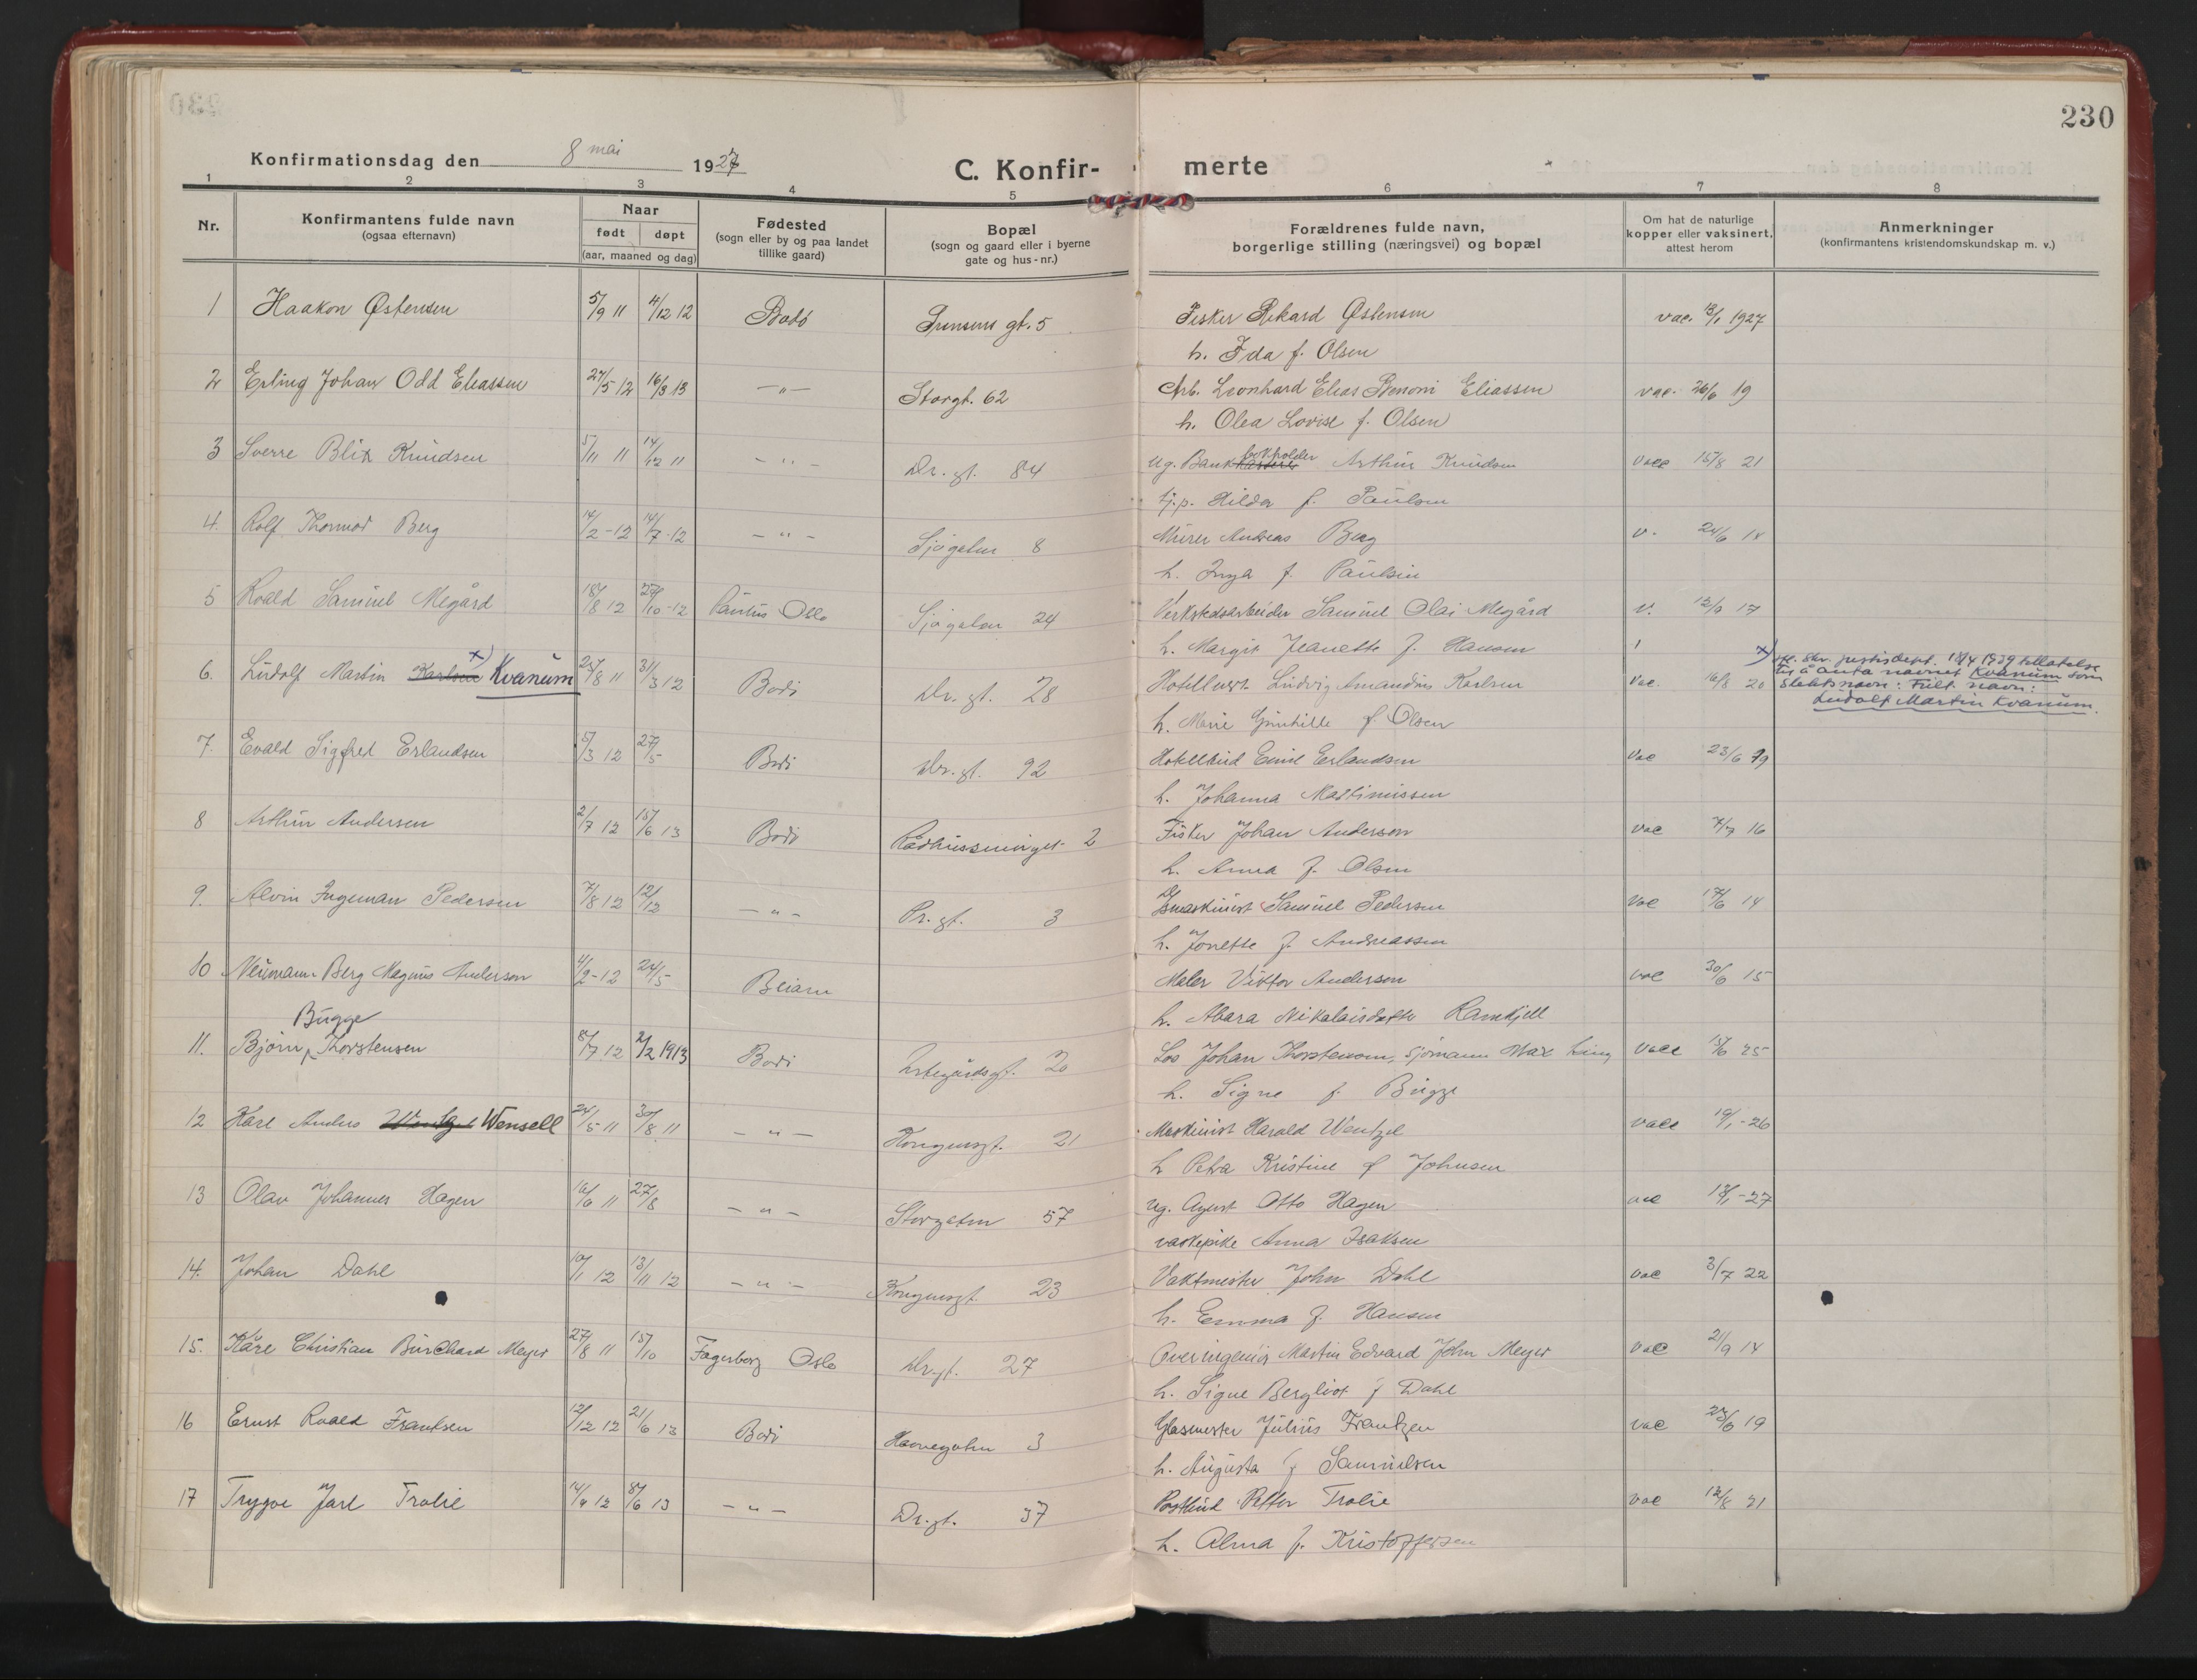 230
Konfirmationsdag den 8 mai 1927
C. Konfir- merte
1 2 3 4 5 6 7 8
Nr.
Konfirmantens fulde navn
(ogsaa efternavn)
Naar
født døpt
(aar, maaned og dag)
Fødested
(sogn eller by og paa landet
tillike gaard)
Bopæl
(sogn og gaard eller i byerne
gate og hus-nr.)
Forældrenes fulde navn,
borgerlige stilling (næringsvei) og bopæl
Om hat de naturlige
kopper eller vaksinert,
attest herom
Anmerkninger
(konfirmantens kristendomskundskap m. v.)
1 Haakon Østensen 5/9 11 4/12 12 Bodø gt. 5 Fisker Rikard Østensen vac. 13/1 1927
h. Ida f. Olsen
2 Erling Johan Odd Eliassen 27/5 12 16/3 13 — " — Storgt. 62 Arb. Leonhard Elias Benoni Eliassen vac. 26/6 19
h. Olea Lovise f. Olsen
3 Sverre Blix Knudsen 5/11 11 14/12 11 — " — Dr. gt. 84 Ug. Bank bokholder Arthur Knudsen vacc 15/8 21
tj.p. Hilda f. Paulsen
4. Rolf Thormod Berg 14/2 - 12 14/7 - 12 — " — Sjøgaten 8 Murer Andreas Berg v. 24/6 18
h. Inga f. Paulsen
5 Roald Samuel Megård 18/8 12 27/10 - 12 Paulus Oslo Sjøgaten 24 Verkstedsarbeider Samuel Olai Megård v. 12/9 17
h. Margit Jeanette f. Hansen
6. Ludolf Martin Karlsen x) Kvanum 25/8 11 31/3 12 Bodø Dr. gt. 28 Ludvig Amandus Karlsen vac. 16/8 20 x) skr. justisdept. 18/4 1939 tillatelse
til å anta navnet Kvanum som
slektsnavn: Fult navn:
Ludolf Martin Kvanum.
h. Marie Gunhille f. Olsen
7. Evald Sigfred Erlandsen 5/3 12 27/5 Bodø Dr. gt. 92 Hotellbud Emil Erlandsen vac 23/6 19
h. Johanna Martinussen
8 Arthur Andersen 2/7 12 15/6 13 Bodø 2 Fisker Johan Anderson vac 7/7 16
h. Anna f. Olsen
9. Alvin Ingeman Pedersen 7/8 12 12/12 — " — Pr. gt. 3 Samuel Pedersen vac 17/6 14
h. Jonette f. Andreassen
10 Neumann Berg Magnus Anderson 4/2 - 12 24/5 Beiarn Maler Viktor Anderson vac 30/6 15
h. Abara Nikalaisdatter Ramkjell
11. Bjørn Bugge Thorstensen 8/7 12 2/2 1913 Bodø Prstegårdsgt. 20 Los Johan Thorstenson, sjømann Max vacc 15/6 25
h. Signe f. Bugge
12 Karl Anders Wentzel Wensell 24/5 11 30/8 11 — " — Kongensgt. 21 Maskinist Harald Wentzel vacc 19/1 - 26
h Petra Kristine f Johnsen
13 Olav Johannes Hagen 16/6 11 27/8 — " — Storgaten 57 Ug. Agent Otto Hagen vac 13/1 - 27
vaskepike Anna Isaksen
14. Johan Dahl 10/1 12 13/11 12 — " — Kongensgt. 23 Vaktmester John Dahl vac 3/7 22
h. Emma f. Hansen
15. Kåre Christian Burchard Meyer 27/8 11 15/10 Fagerborg Oslo Dr. gt. 27 Overingeniør Martin Edvard John Meyer vac 2/9 14
h. Signe Bergliot f Dahl
16 Ernst Roald Frantsen 12/12 12 21/6 13 Bodø Havnegaten 3 Glasmester Julius Frantzen vac 23/6 19
h. Augusta f Samuelsen
17 Trygve Jarl Trolie 14/4 12 8/6 13 — " — Dr. gt. 37 Postbud Petter Trolie vac 12/8 21
h. Alma f. Kristoffersen